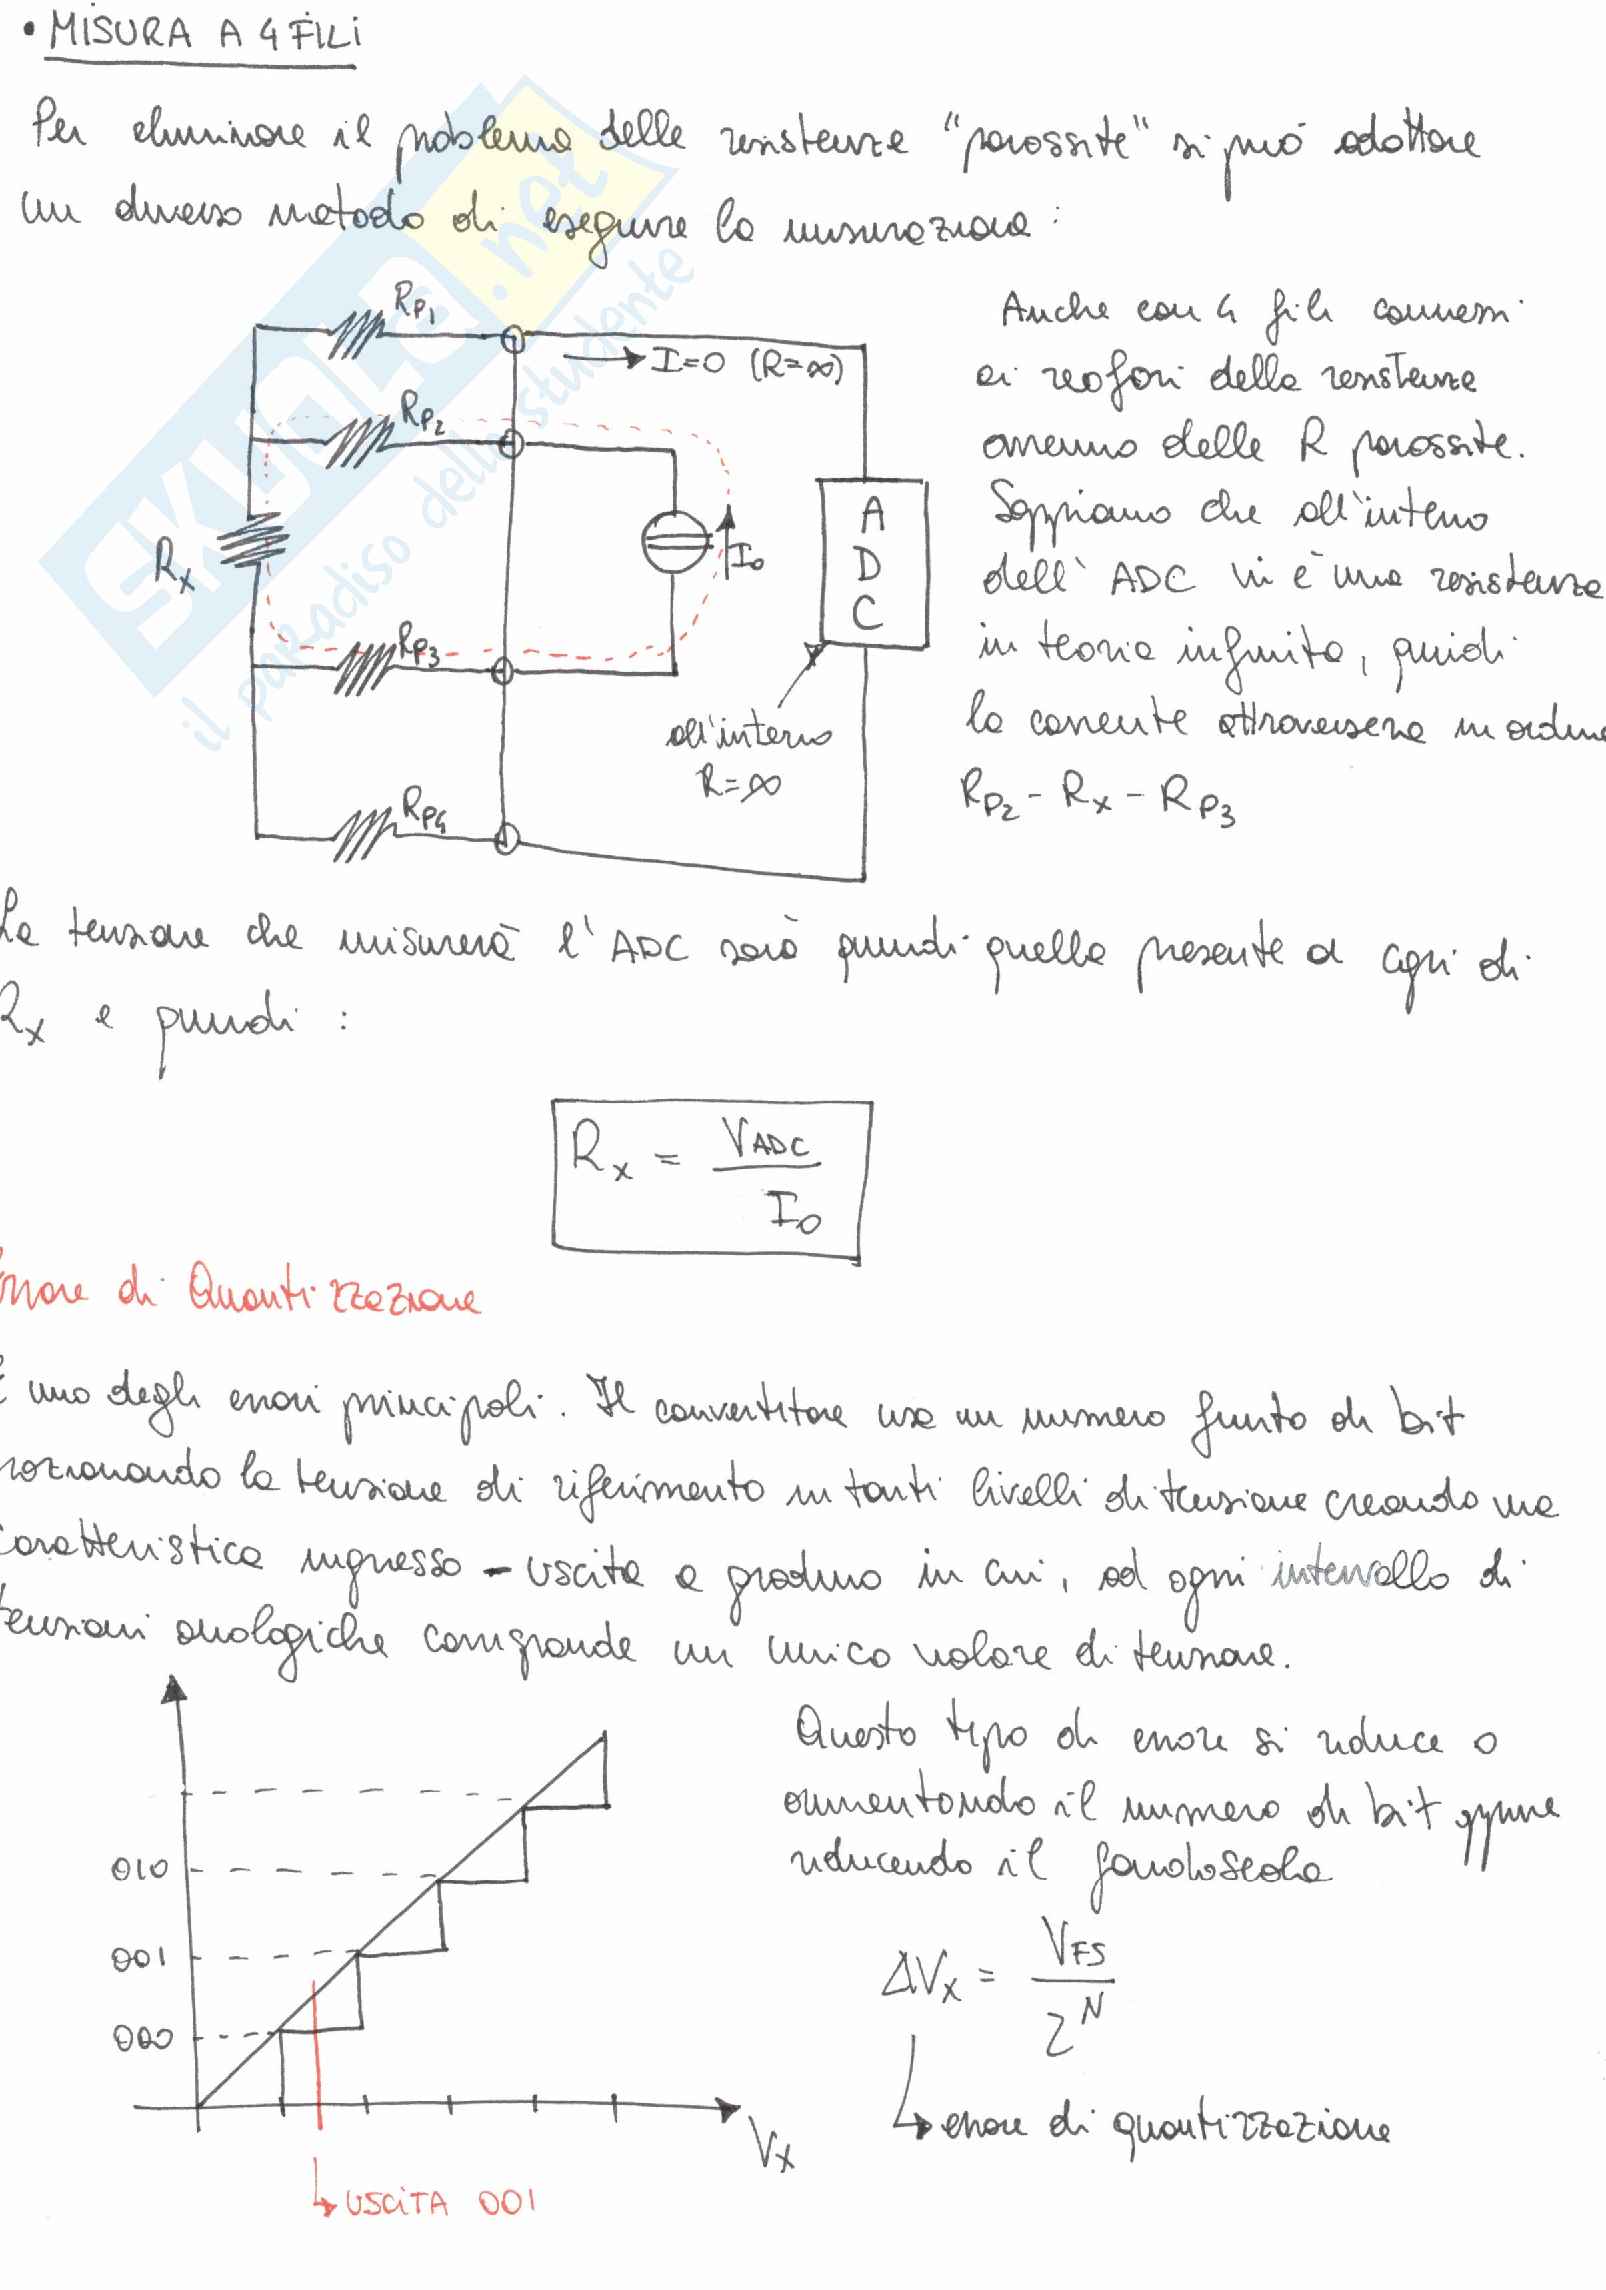 • MISURA A 4 FILI
Per eliminare il problema delle resistenze "parassite" si può adottare
un diverso metodo di eseguire la misurazione:
RP1
I=0 (R=∞)
RP2
Rx
I0
A
D
C
RP3
all'interno
R=∞
RP4
Anche con 4 fili connessi
ai reofori della resistenza
avremo delle R parassite.
Sappiamo che all'interno
dell'ADC vi è una resistenza
in teoria infinita, quindi
la corrente attraversera in ordine
RP2 - Rx - RP3
La tensione che misurerà l'ADC sarà quindi quella presente a capi di
Rx e quindi:
Rx = VADC / I0
Errore di Quantizzazione
È uno degli errori principali. Il convertitore usa un numero finito di bit
frazionando la tensione di riferimento in tanti livelli di tensione creando una
caratteristica ingresso - uscita a gradino in cui, ad ogni intervallo di
tensioni analogiche corrisponde un unico valore di tensione.
010
001
000
Vx
USCITA 001
Questo tipo di errore si riduce o
aumentando il numero di bit oppure
riducendo il fondoscala
ΔVx = VFS / 2^N
errore di quantizzazione
SKUOLA.net
il paradiso dello studente